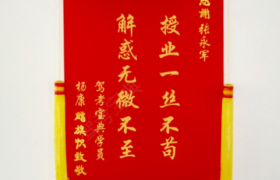 感谢张永军
授业一丝不苟
解惑无微不至
驾考宝典学员
杨康赠旗致敬